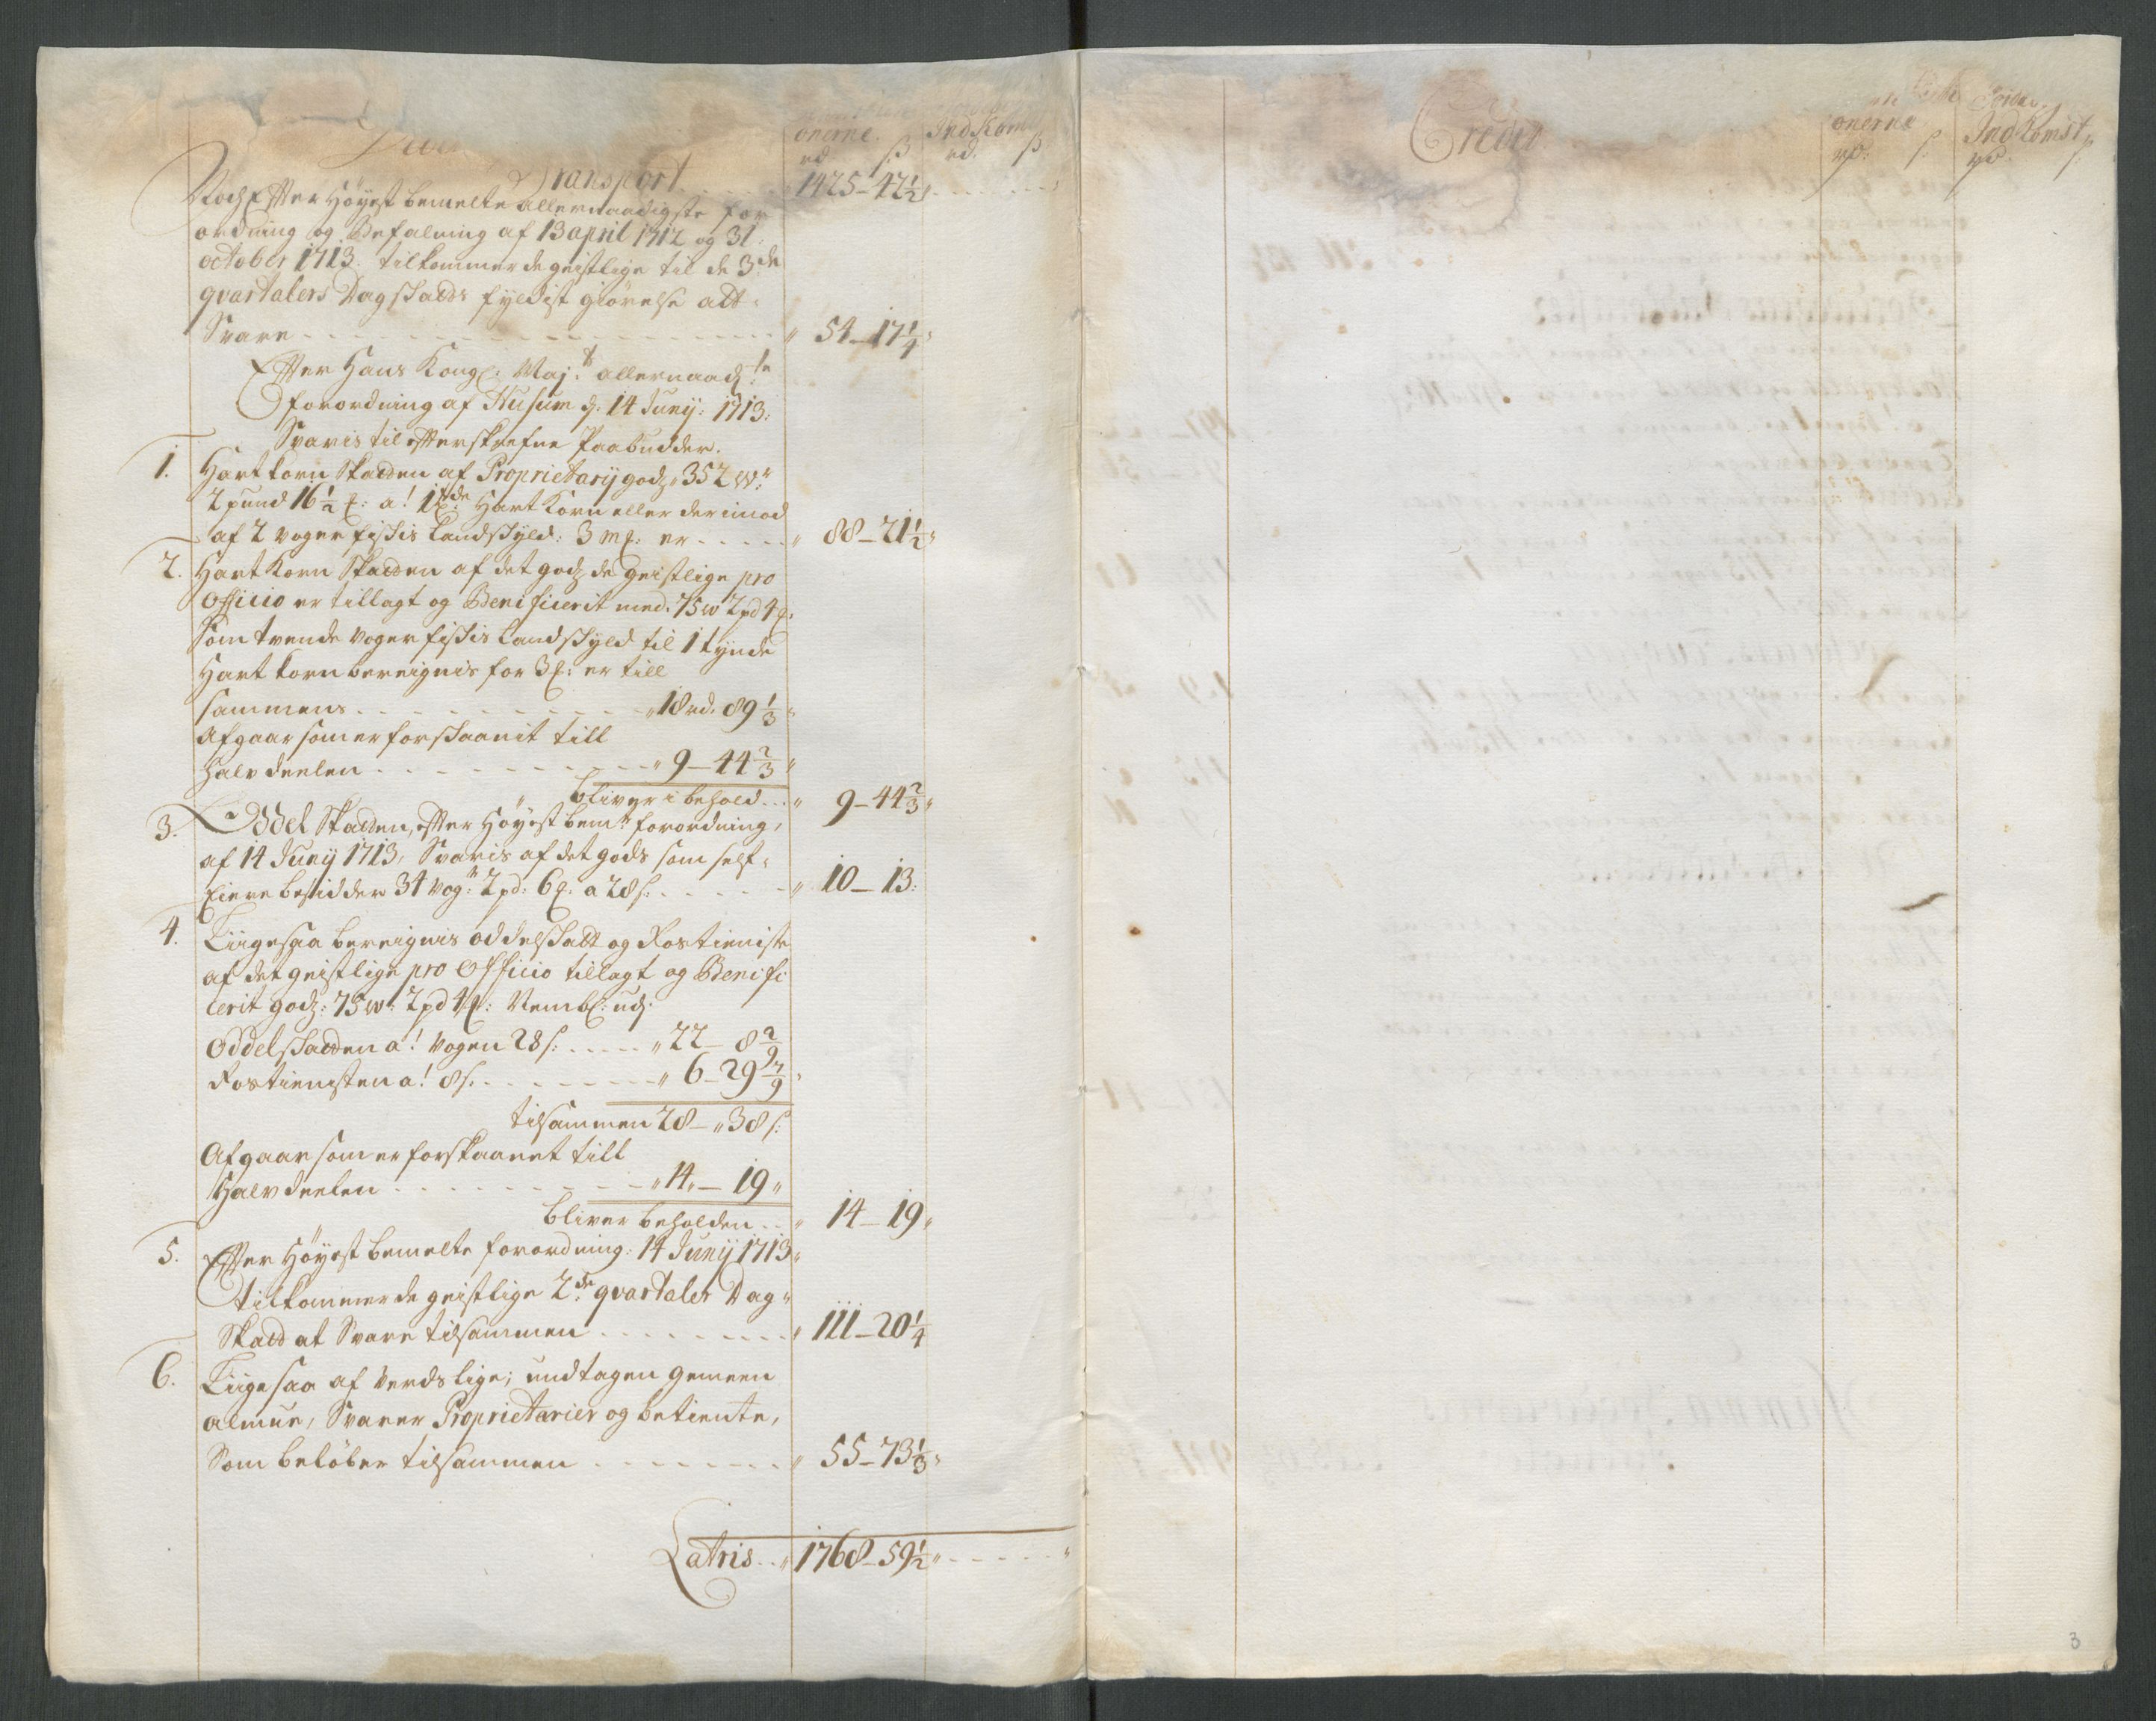 onerne. Ind Kom
rd ß rd. ß
Transport . . . . . 1425 – 42½
Noch Effter Höyest bemelte allernaadigste for
ordning og Befalning af 13 april 1712 og 31:
october 1713. tilkommer de geistlige til de 3de
qvartalers Dagskatts fyldist giörelse att
Svare . . . . . 54 – 17¼
Effter Hans Kongl: Maj:t allernaad:ste
forordning af Husum d. 14 Junij: 1713:
Svaris til effterskrefne Paabudder.
1. Hartkorn Skatten af Proprietarij godz 352 W:r
2 pund 16½ ℔: a! 1 tde Hart Korn eller derimod
af 2 woger fiskis Landskyld: 3 m℔: er . . . . . 88 – 21½
2. Hart Korn Skatten af det godz de geistlige pro
Officio er tillagt og Beneficerit med. 75 w 2 pd 4 ℔:
som tvende woger fiskis Landskyld til 1 tynde
Hart korn bereignis for 3 ℔: er till
sammens . . . . . 18 rd. 89⅓
Afgaar som er forskaanit till
halv deelen . . . . . 9 – 44⅔
bliver i behold . . . 9 – 44⅔
3. Oddel Skatten, effter Höyest bem:te forordning,
af 14 Junij 1713, Svaris af det gods som self
Eiere besidder 34 Vog:r 2 pd: 6 ℔. a 28 ß: . . . . . 10 – 13:
4. Liigesaa bereignis oddelskatt og Rostieniste
af det geistlige pro Officio tillagt og Benifi
cerit godz: 75 w: 2 pd 4 ℔: Nembl: udj.
Oddelskatten a! Vogen 28 ß: . . . . . 22 – 8 2/9
Rostienisten a! 8 ß: . . . . . 6 – 29 7/9
tilsammen 28 – 38 ß:
Afgaar som er forskaanet till
Halv deelen . . . . . 14 – 19
bliver beholden . . 14 – 19
5. Effter Höyest bemelte forordning: 14 Junij 1713
tilkommer de geistlige 2de qvartaler Dag
Skatt at Svare tilsammen . . . . . 111 – 20¼
6. Liigesaa af Verdslige; undtagen gemeen
almue, Svarer Proprietarier og betiente,
Som beløber tilsammen . . . . . 55 – 73⅓
Latris . . 1768 – 59½
Credit
onerne Ind Komst
rd: ß: rd: ß:
3